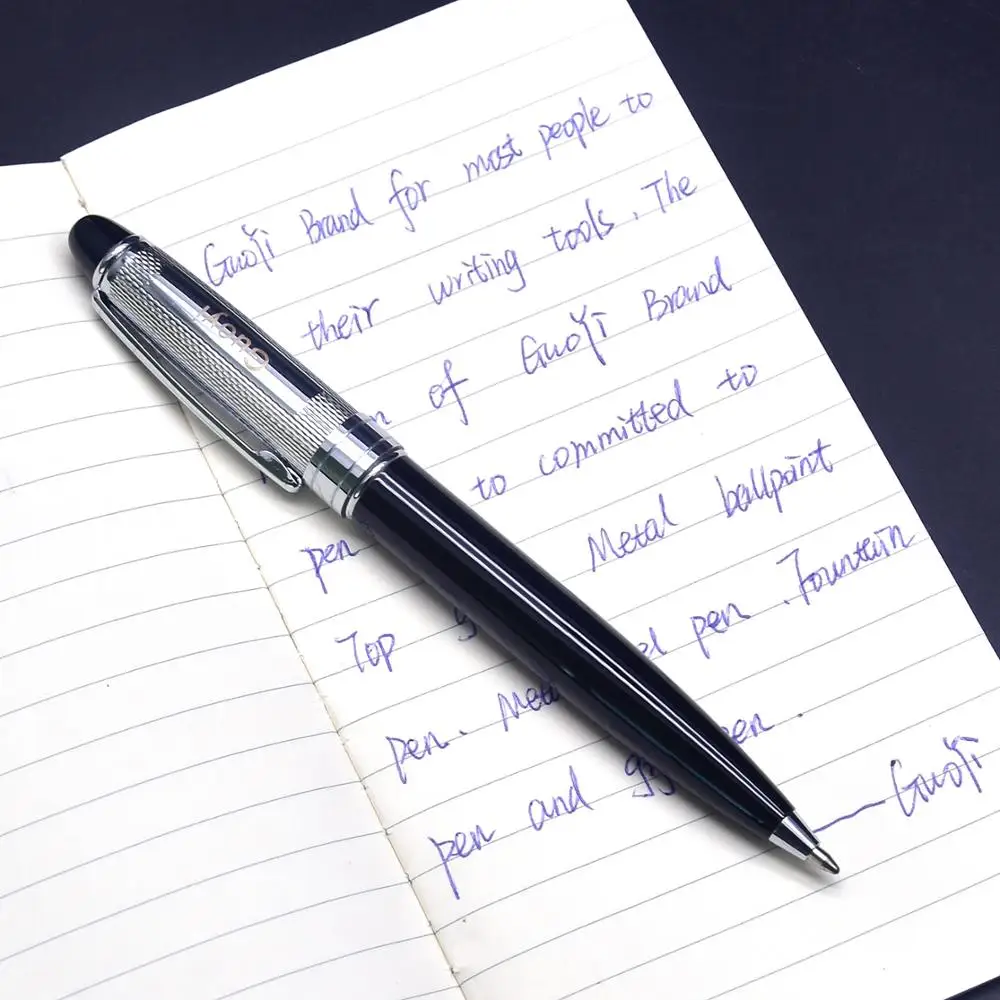 GuoYi Brand for most people to
their writing tools. The
of GuoYi Brand
to committed to
pen Metal ballpoint
Top pen. Fountain
pen. 
pen and
— GuoYi
Guoyi